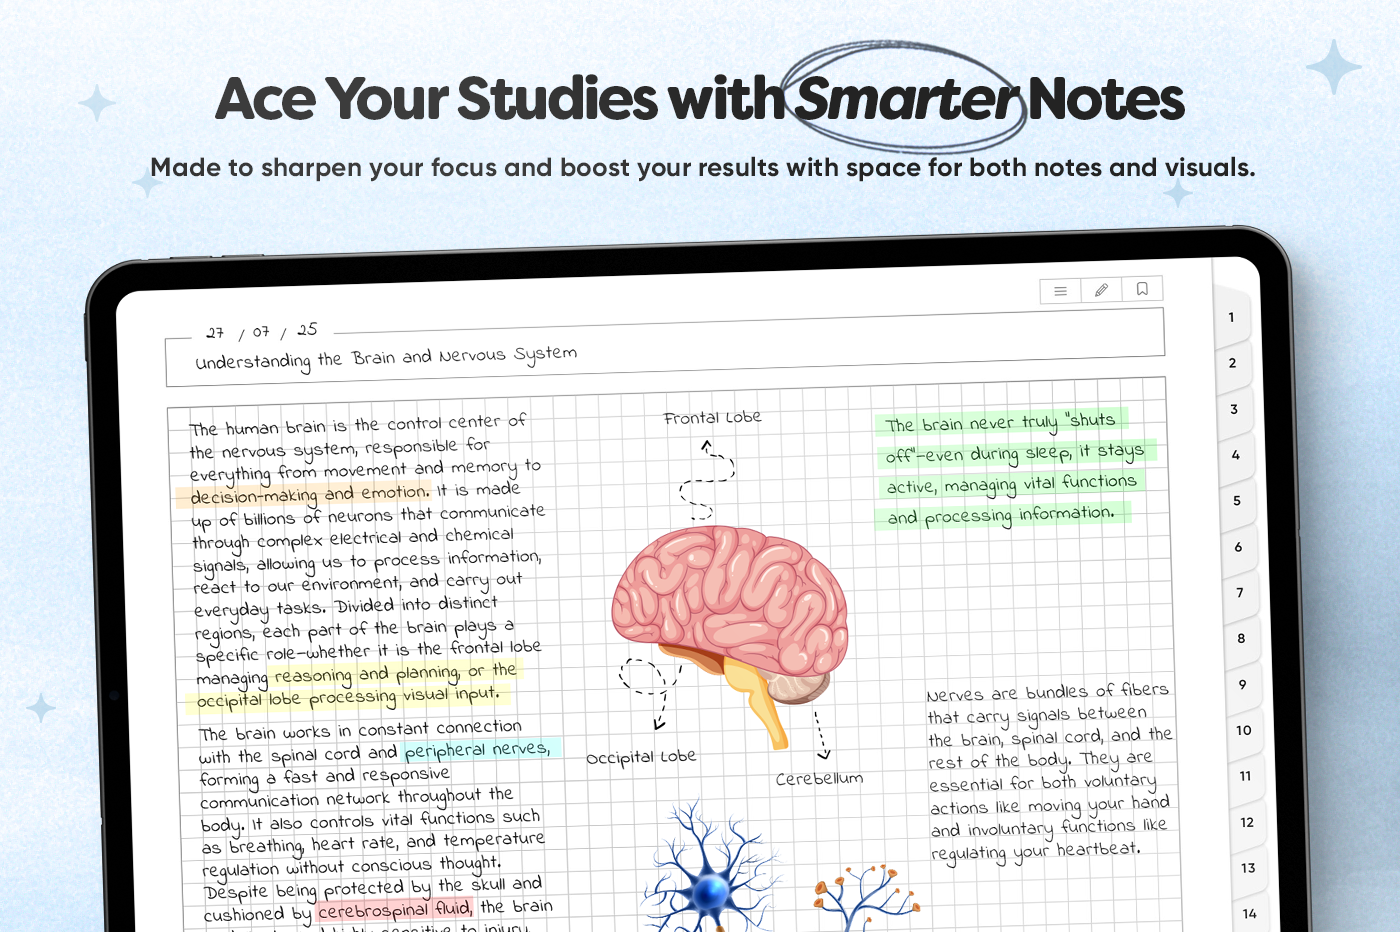 Ace Your Studies with Smarter Notes
Made to sharpen your focus and boost your results with space for both notes and visuals.
27 / 07 / 25
Understanding the Brain and Nervous System
The human brain is the control center of
the nervous system, responsible for
everything from movement and memory to
decision-making and emotion. It is made
up of billions of neurons that communicate
through complex electrical and chemical
signals, allowing us to process information,
react to our environment, and carry out
everyday tasks. Divided into distinct
regions, each part of the brain plays a
specific role—whether it is the frontal lobe
managing reasoning and planning, or the
occipital lobe processing visual input.
The brain works in constant connection
with the spinal cord and peripheral nerves,
forming a fast and responsive
communication network throughout the
body. It also controls vital functions such
as breathing, heart rate, and temperature
regulation without conscious thought.
Despite being protected by the skull and
cushioned by cerebrospinal fluid, the brain
sensitive to injury
Frontal Lobe
Occipital Lobe
Cerebellum
The brain never truly "shuts
off"—even during sleep, it stays
active, managing vital functions
and processing information.
Nerves are bundles of fibers
that carry signals between
the brain, spinal cord, and the
rest of the body. They are
essential for both voluntary
actions like moving your hand
and involuntary functions like
regulating your heartbeat.
1
2
3
4
5
6
7
8
9
10
11
12
13
14